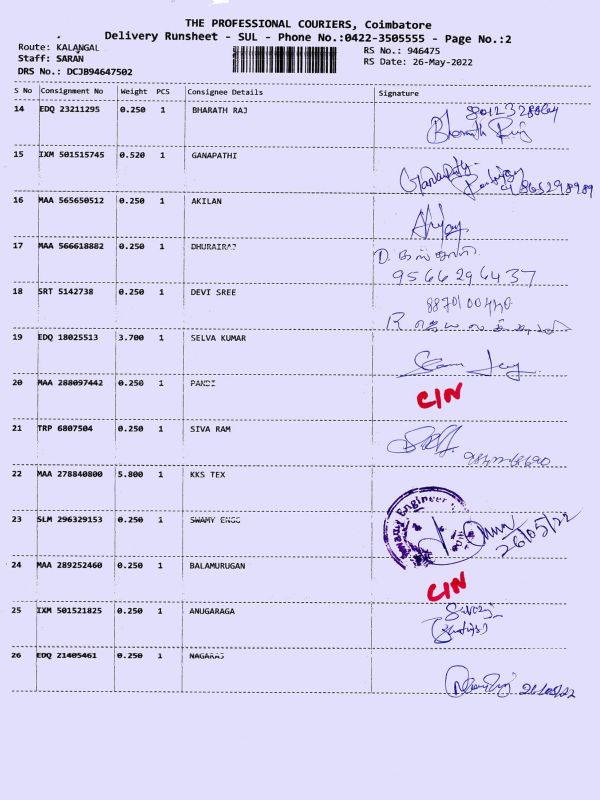 THE PROFESSIONAL COURIERS, Coimbatore
Delivery Runsheet - SUL - Phone No.:0422-3505555 - Page No.:2
Route: KALANGAL
RS No.: 946475
Staff: SARAN
RS Date: 26-May-2022
DRS No.: DCJB94647502
S No Consignment No Weight PCS Consignee Details Signature
14 EDQ 23211295 0.250 1 BHARATH RAJ
Bharath Raj
15 IXM 501515745 0.520 1 GANAPATHI
Ganapathy
9865298989
16 MAA 565650512 0.250 1 AKILAN
17 MAA 566618882 0.250 1 DHURAIRAJ
9566296437
18 SRT 5142738 0.250 1 DEVI SREE
19 EDQ 18025513 3.700 1 SELVA KUMAR
20 MAA 288097442 0.250 1 PANDI
C/N
21 TRP 6807504 0.250 1 SIVA RAM
22 MAA 278840800 5.800 1 KKS TEX
23 SLM 296329153 0.250 1 SWAMY ENGG
Swamy Engineer
26/05/22
24 MAA 289252460 0.250 1 BALAMURUGAN
C/N
25 IXM 501521825 0.250 1 ANUGARAGA
26 EDQ 21405461 0.250 1 NAGARAJ
26/05/22